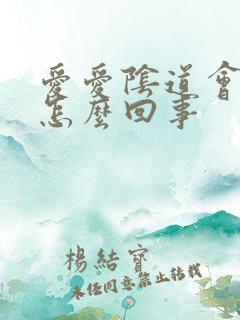 愛愛陰道會
怎麼回事
楊結寶
未經同意禁止轉載